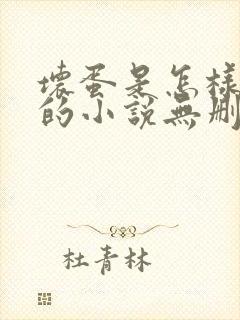 壞蛋是怎樣
的小說無刪
杜青林